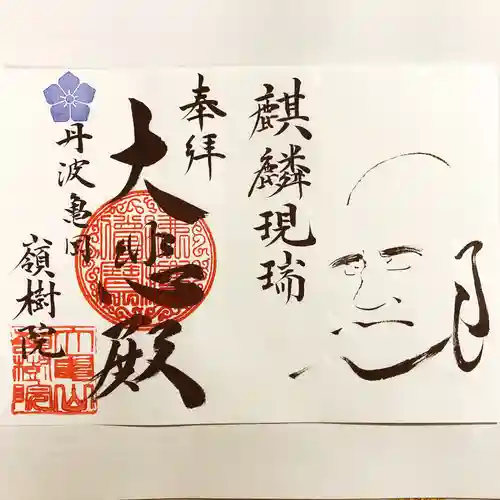 麒麟現瑞
奉拝
大悲殿
丹波亀岡
嶺樹院